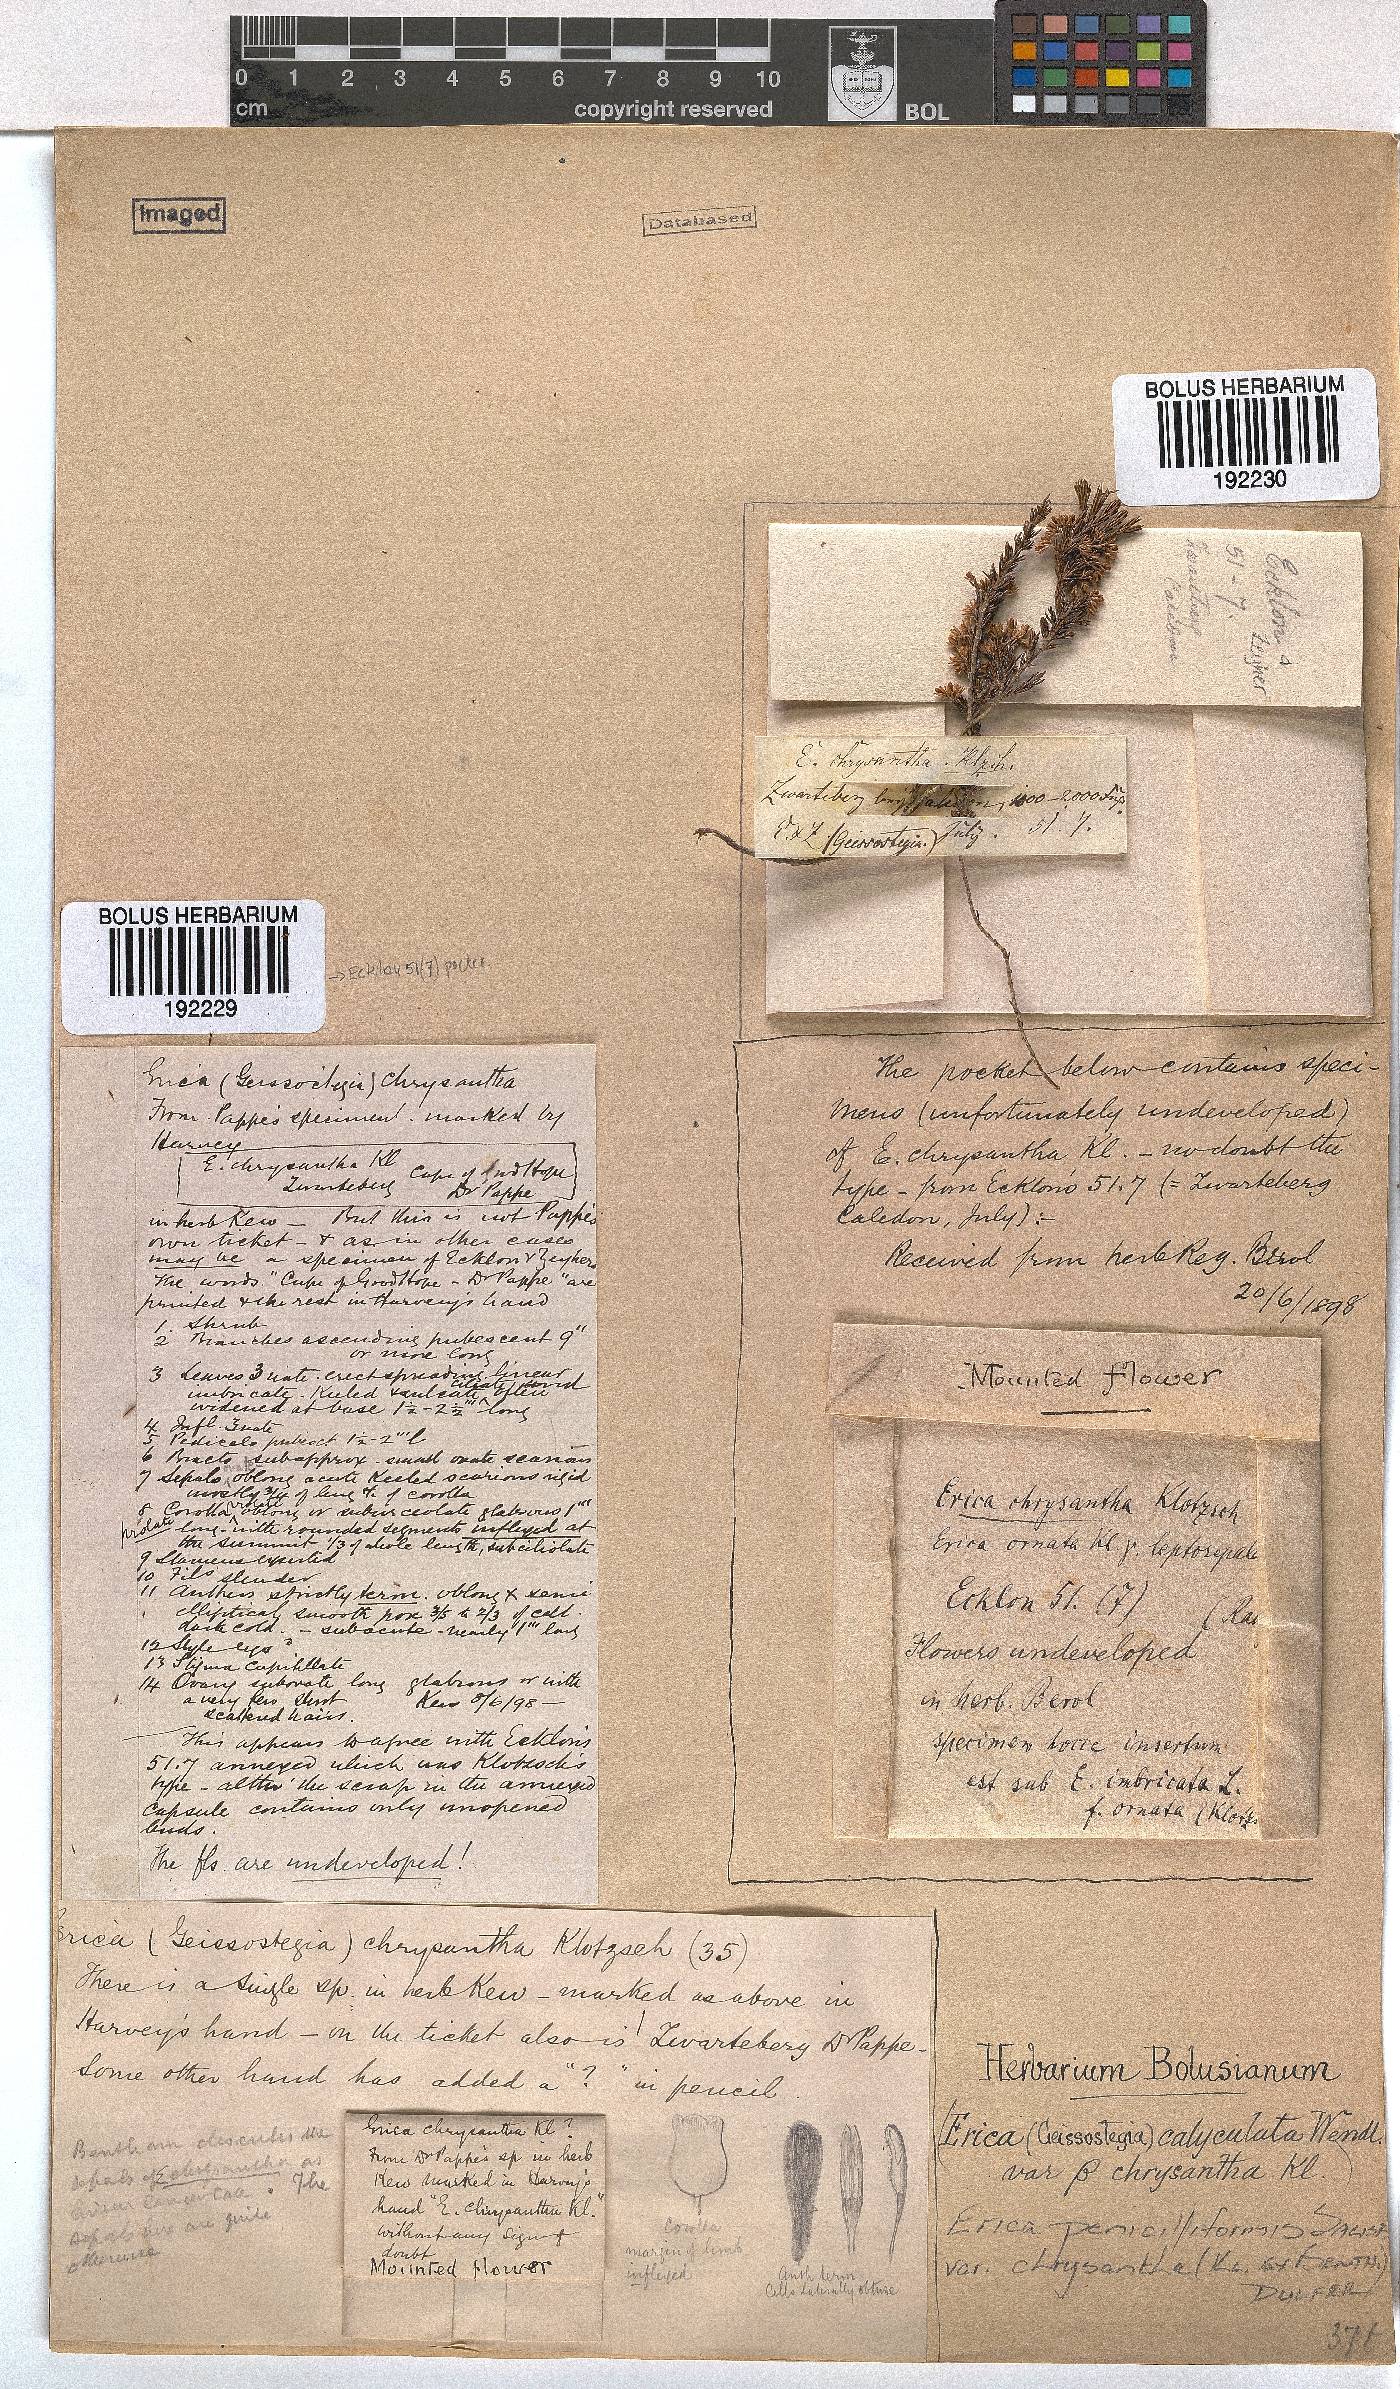 0 1 2 3 4 5 6 7 8 9 10
cm copyright reserved BOL
Imaged
Databased
BOLUS HERBARIUM
192230
Ecklon &
Zeyher
51-7.
E. chrysantha Klzch.
Zwarteberg 1000-2000
E & Z (Geissostegia.) July. 51.7.
BOLUS HERBARIUM
192229
→ Ecklon 51(7)
Erica (Geissostegia) chrysantha
From Pappe's specimen marked by
Harvey
E. chrysantha Kl
Zwarteberg Cape of Good Hope
Dr Pappe
in herb Kew — But this is not Pappe's
own ticket - & as in other cases
may be a specimen of Ecklon & Zeyhers
The words "Cape of Good Hope - Dr Pappe" are
printed & the rest in Harvey's hand
1 Shrub
2 Branches ascending pubescent 9"
or more long
3 Leaves 3 nate erect spreading linear
imbricate. Keeled & sulcate ciliate
widened at base 1½-2½''' long
4 Infl. 3 nate
5 Pedicels 1½-2''' l
6 Bracts subapprox. small ovate scarious
7 Sepals oblong acute keeled scarious rigid
mostly ¾ of leng th of corolla
8 Corolla oblong or suburceolate glabrous 1'''
long with rounded segments inflexed at
the summit 1/3 of whole length, subciliolate
9 Stamens exserted
10 Fils slender
11 Anthers strictly term. oblong & semi
elliptical smooth pore 3/5 to 2/3 of cell.
dark cold. - subacute - nearly 1''' long
12 Style
13 Stigma capitellate
14 Ovary subovate long glabrous or with
a very few short Kew 8/6/98 —
scattered hairs.
This appears to agree with Ecklon's
51.7 annexed which was Klotzsch's
type - altho' the scrap in the annexed
capsule contains only unopened
buds.
The fls. are undeveloped!
The pocket below contains speci-
mens (unfortunately undeveloped)
of E. chrysantha Kl. - no doubt the
type - from Ecklon's 51.7 (= Zwarteberg
Caledon, July) :-
Received from herb Reg. Berol
20/6/1898
Mounted flower
Erica chrysantha Klotzsch
Erica ornata Kl γ. leptosepala
Ecklon 51. (7)
Flowers undeveloped
in herb. Berol
specimen hocce insertum
est sub E. imbricata L.
f. ornata (Klotz
Erica (Geissostegia) chrysantha Klotzsch (35)
There is a single sp. in herb Kew - marked as above in
Harvey's hand - on the ticket also is Zwarteberg Dr Pappe -
Some other hand has added a "?" in pencil.
Bentham describes the
sepals of E chrysantha as
linear lanceolate. The
sepals are quite
otherwise
Erica chrysantha Kl?
From Dr Pappe's sp in herb
Kew marked in Harvey's
hand "E. chrysantha Kl."
without any sign of
doubt
Mounted flower
Corolla
margin of limb
inflexed
Anth term
Cells laterally
Herbarium Bolusianum
Erica (Geissostegia) calyculata Wendl.
var β chrysantha Kl.
Erica penicilliformis SALISB
var. chrysantha (KL. EX BENTH.)
DULFER
371